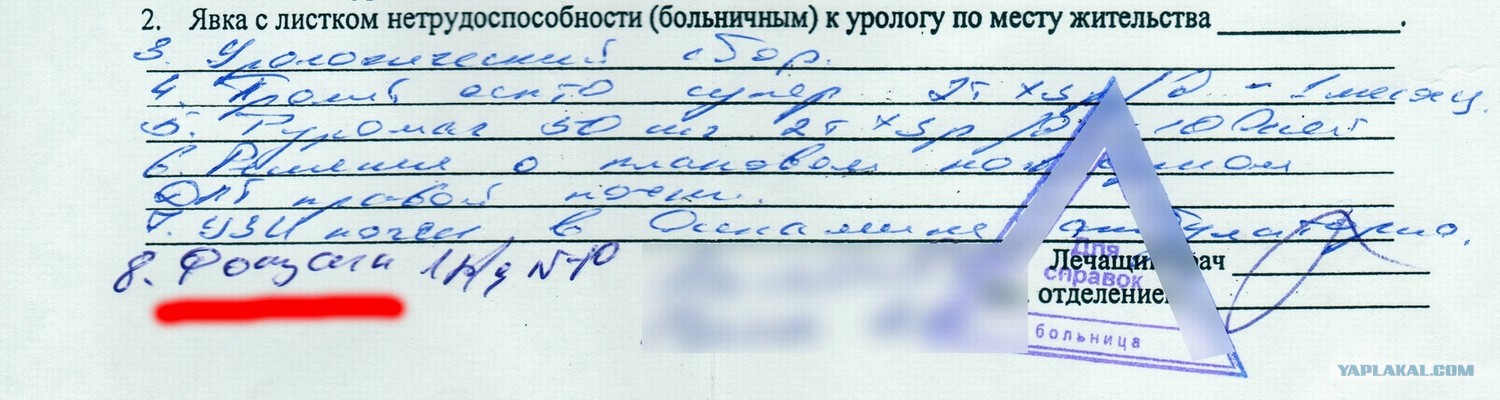 2. Явка с листком нетрудоспособности (больничным) к урологу по месту жительства .
3. Урологический сбор.
4. Пролит септо супер 2т х 3р/д - 1 месяц.
5. 50 мг 2т х 3р/д 10 дней
6. Решение о плановом
ДЛТ правой почки.
7. УЗИ почек в динамике амбулаторно.
8. N 10
Лечащий врач
отделением
Для
справок
больница
YAPLAKAL.COM